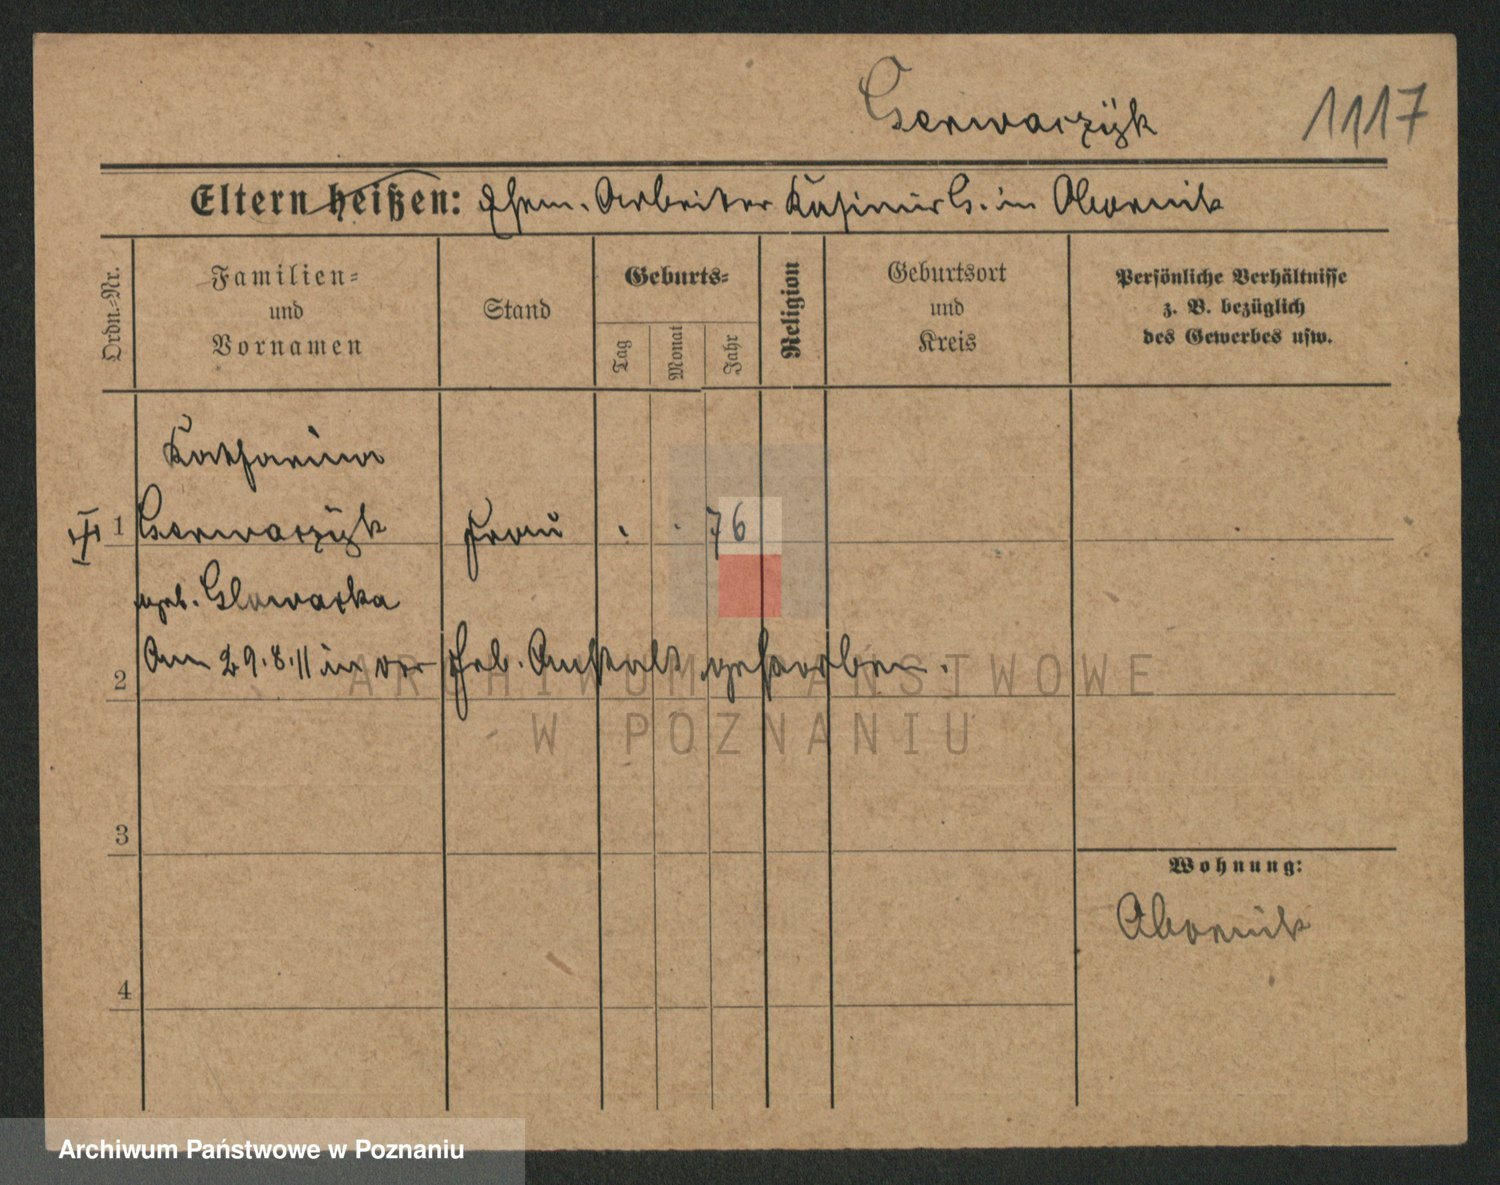 Czerwaczÿk 1117
Eltern heißen: Ehem. Arbeiter Kasimir C. in Obornik
Ordn.=Nr.
Familien=
und
Vornamen
Stand
Geburts=
Tag
Monat
Jahr
Religion
Geburtsort
und
Kreis
Persönliche Verhältnisse
z. B. bezüglich
des Gewerbes usw.
Katharina
1 Czerwaczÿk Frau . . 76 .
geb. Glowacka
2 Am 29.8.11 in der Heb. Anstalt gestorben.
ARCHIWUM PAŃSTWOWE
W POZNANIU
3
Wohnung:
Obornik
4
Archiwum Państwowe w Poznaniu